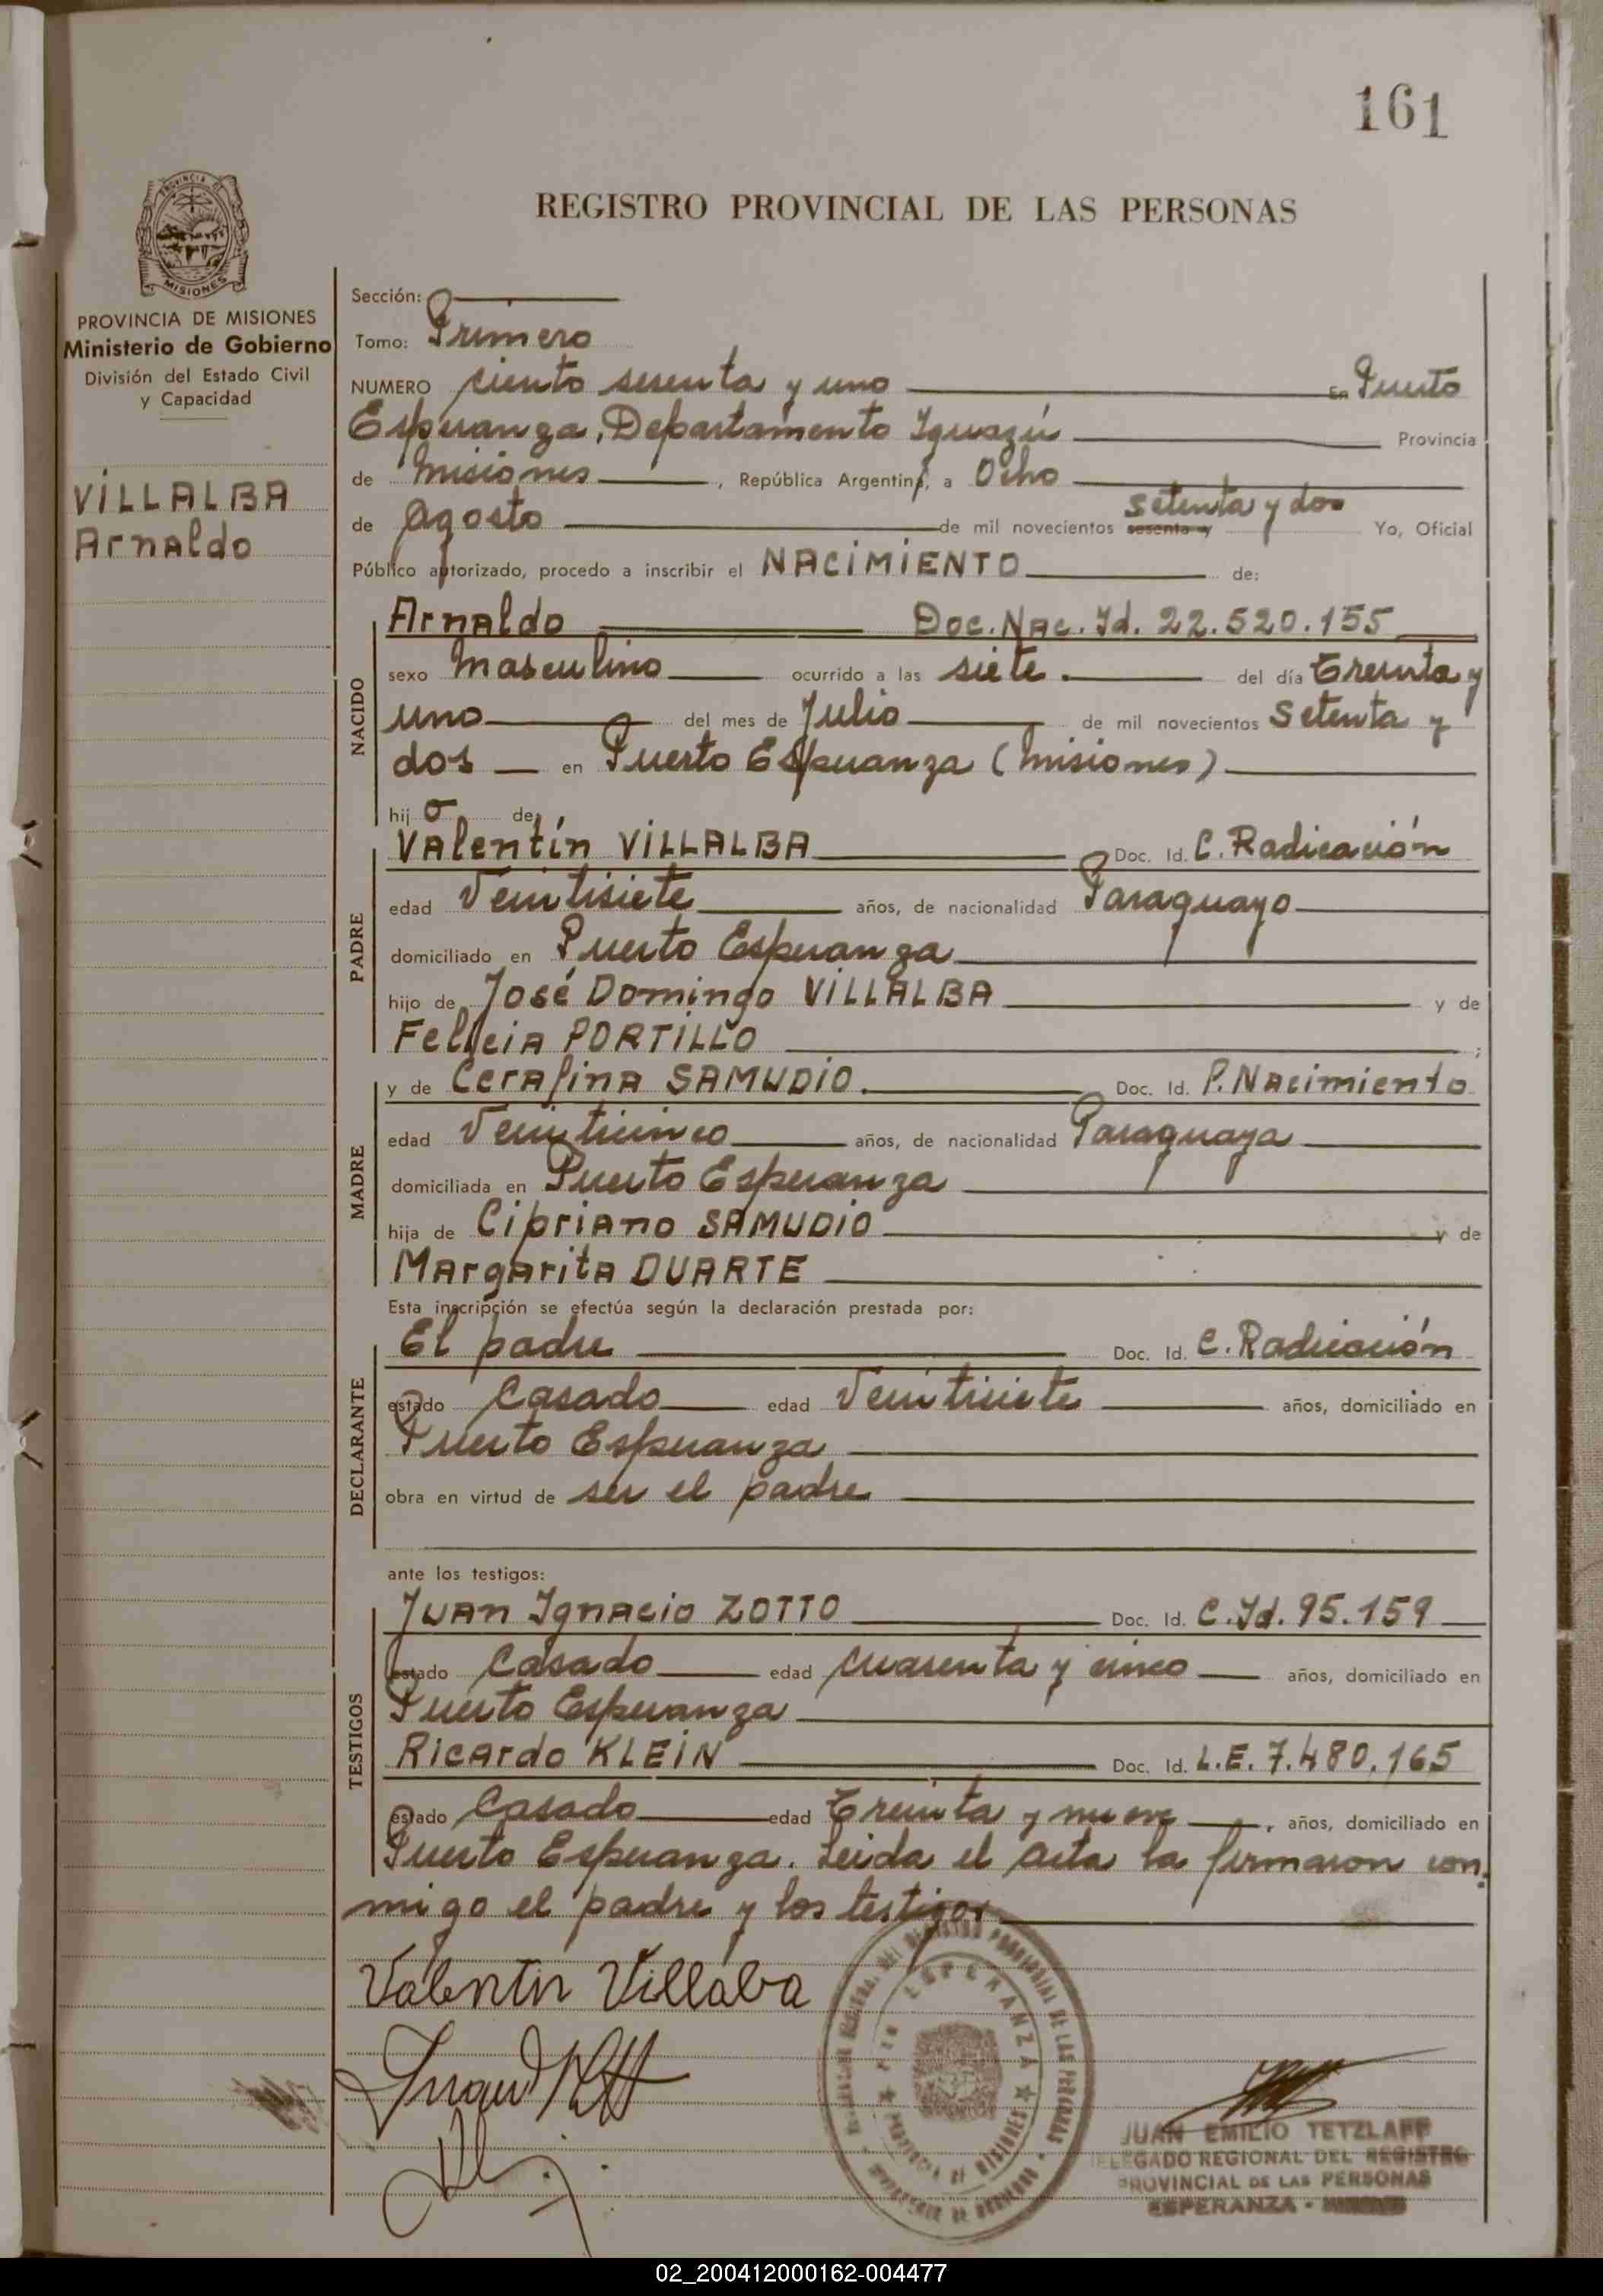 161
REGISTRO PROVINCIAL DE LAS PERSONAS
PROVINCIA DE MISIONES
PROVINCIA DE MISIONES
Ministerio de Gobierno
División del Estado Civil
y Capacidad
VILLALBA
Arnaldo
Sección:
Tomo: Primero
NUMERO ciento sesenta y uno En Puerto
Esperanza, Departamento Iguazú Provincia
de Misiones, República Argentina, a Ocho
de Agosto de mil novecientos sesenta y setenta y dos Yo, Oficial
Público autorizado, procedo a inscribir el NACIMIENTO de:
NACIDO
Arnaldo Doc. Nac. Id. 22.520.155
sexo Masculino ocurrido a las siete. del día Treinta y
uno del mes de Julio de mil novecientos Setenta y
dos en Puerto Esperanza (Misiones)
hijo de
PADRE
Valentín VILLALBA Doc. Id. C. Radicación
edad Veintisiete años, de nacionalidad Paraguayo
domiciliado en Puerto Esperanza
hijo de José Domingo VILLALBA y de
Felicia PORTILLO ;
MADRE
y de Cerafina SAMUDIO. Doc. Id. P. Nacimiento
edad Veinticinco años, de nacionalidad Paraguaya
domiciliada en Puerto Esperanza
hija de Cipriano SAMUDIO y de
Margarita DUARTE
Esta inscripción se efectúa según la declaración prestada por:
DECLARANTE
El padre Doc. Id. C. Radicación
estado Casado edad Veintisiete años, domiciliado en
Puerto Esperanza
obra en virtud de ser el padre
ante los testigos:
TESTIGOS
Juan Ignacio ZOTTO Doc. Id. C. Id. 95.159
estado Casado edad cuarenta y cinco años, domiciliado en
Puerto Esperanza
Ricardo KLEIN Doc. Id. L.E. 7.480.165
estado Casado edad Treinta y nueve, años, domiciliado en
Puerto Esperanza. Leida el acta la firmaron con-
migo el padre y los testigos
Valentin Villalba
ESPERANZA
PROVINCIA DE MISIONES
JUAN EMILIO TETZLAFF
DELEGADO REGIONAL DEL REGISTRO
PROVINCIAL DE LAS PERSONAS
ESPERANZA - MISIONES
02_200412000162-004477